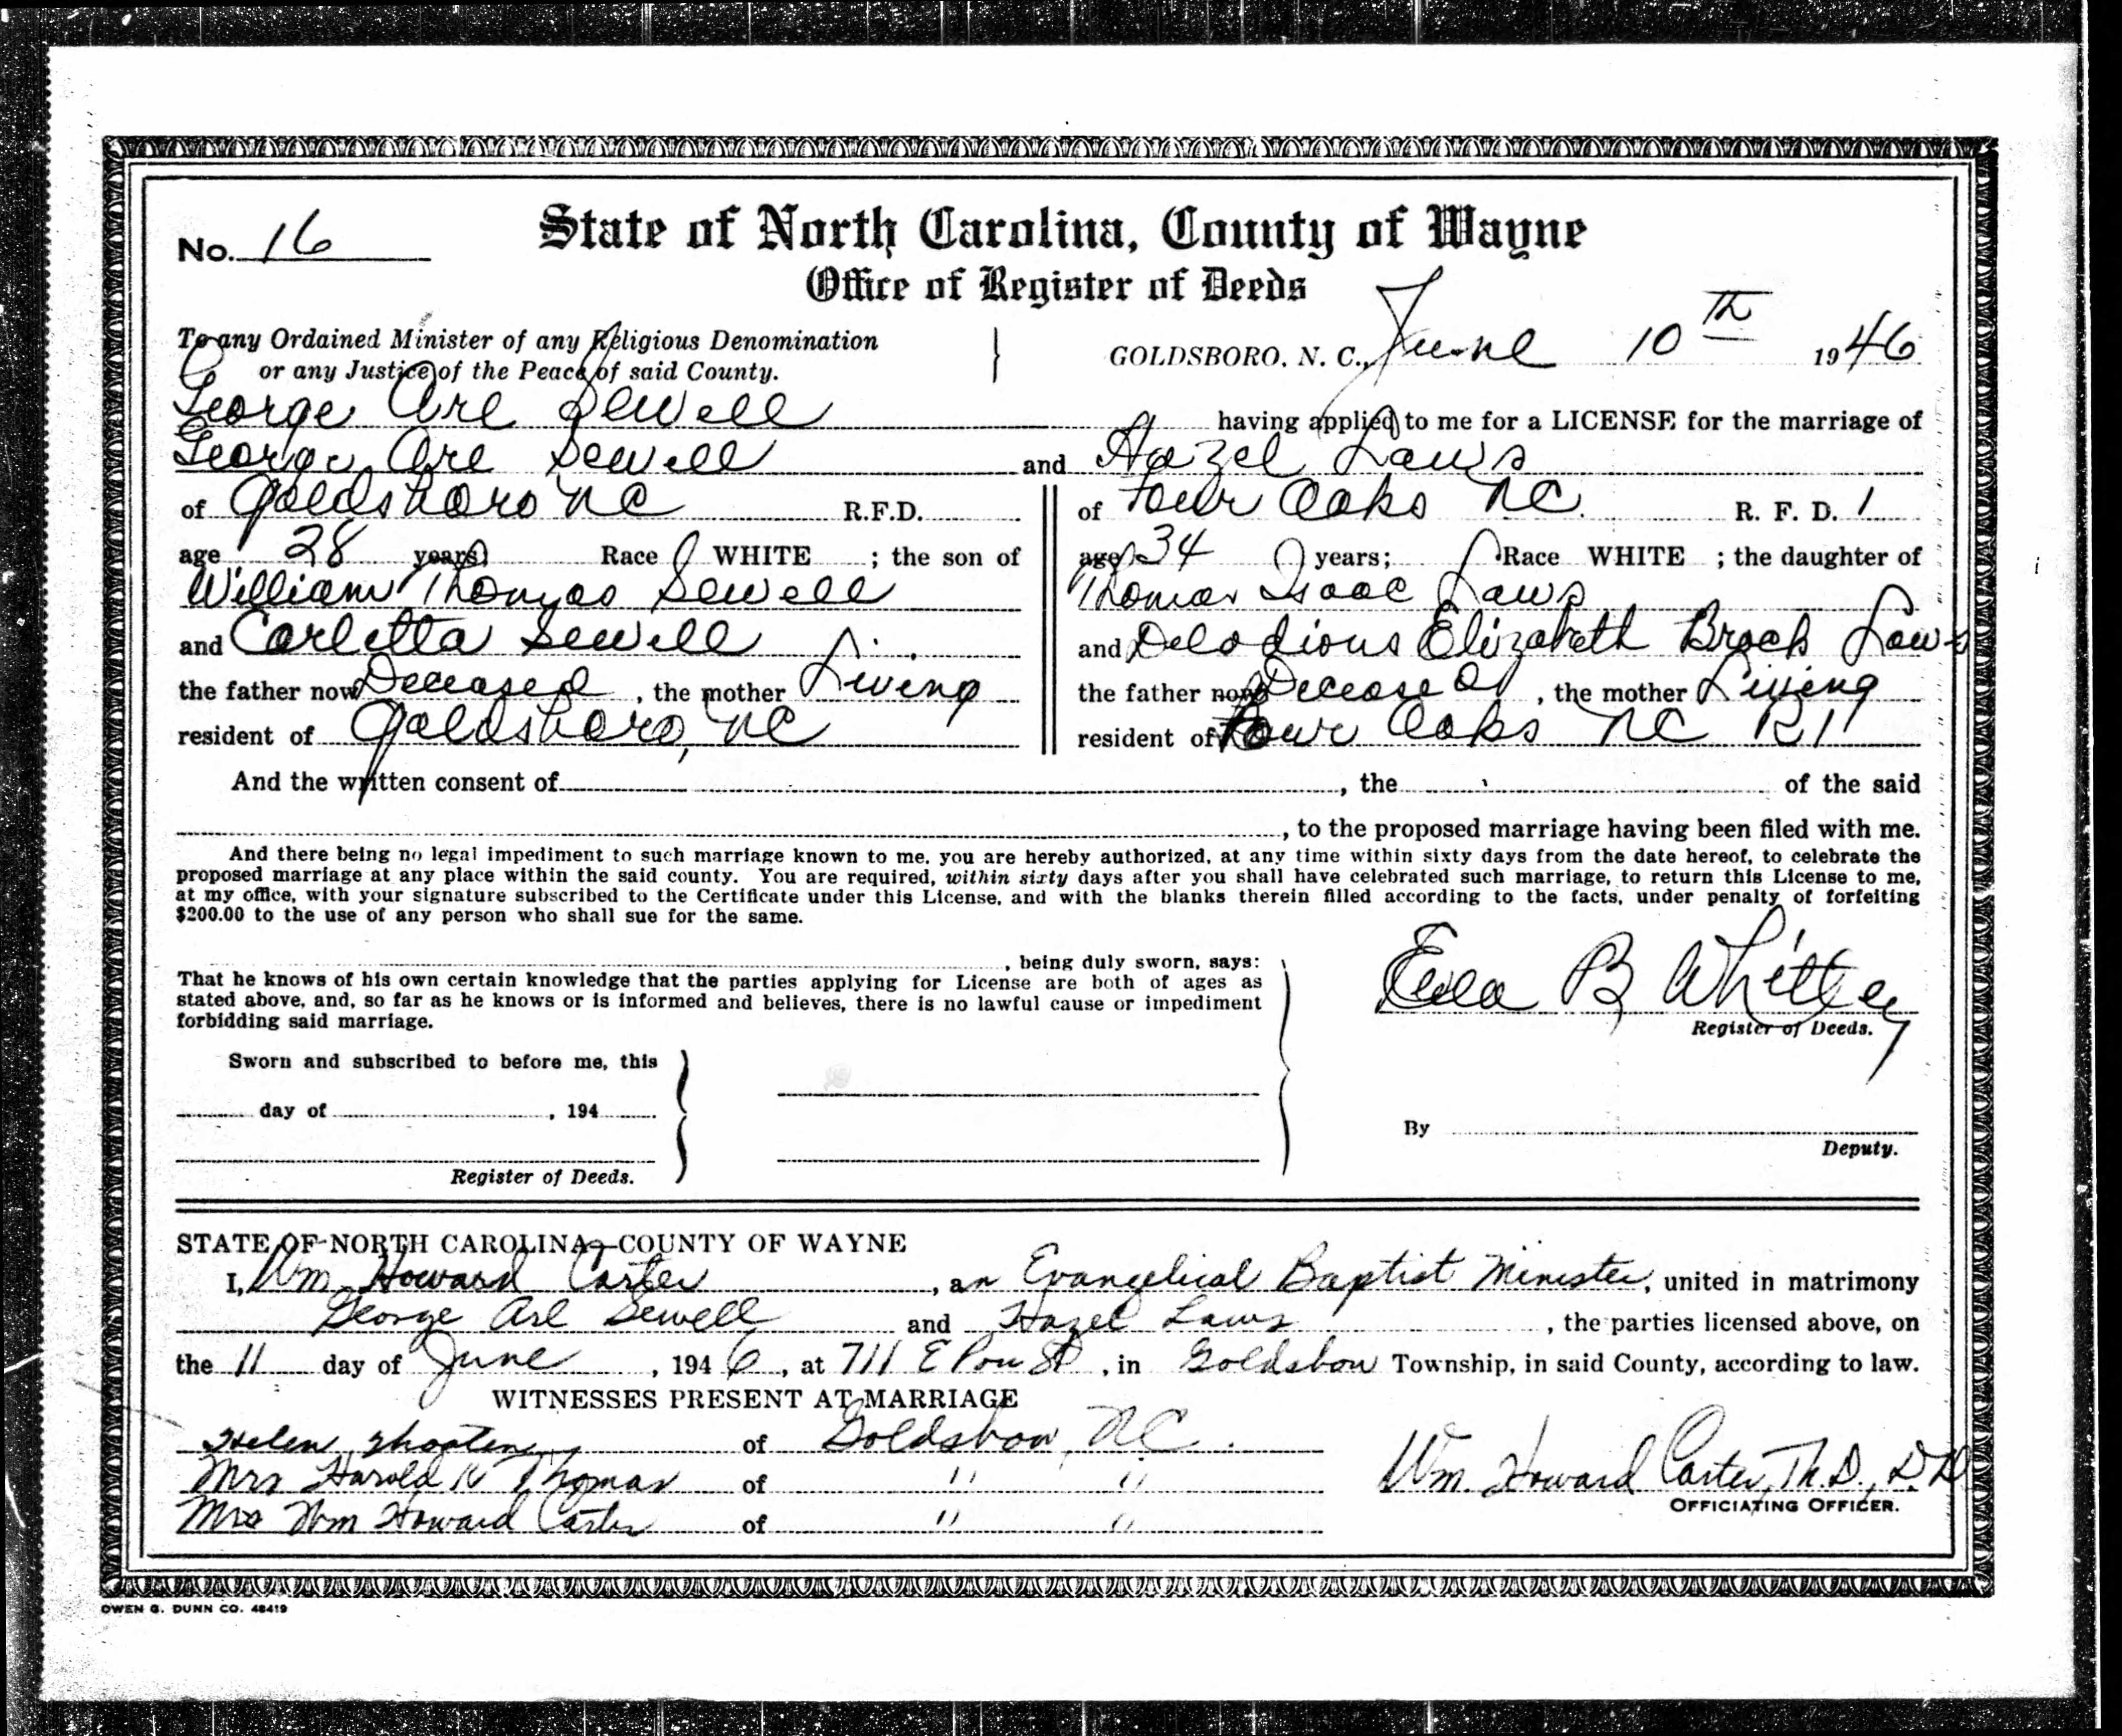 No. 16
State of North Carolina, County of Wayne
Office of Register of Deeds
To any Ordained Minister of any Religious Denomination
or any Justice of the Peace of said County.
GOLDSBORO, N. C., June 10th 1946
George Arl Sewell having applied to me for a LICENSE for the marriage of
George Arl Sewell and Hazel Laws
of Goldsboro NC R.F.D.
age 28 years; Race WHITE ; the son of
William Thomas Sewell
and Carletta Sewell
the father now Deceased, the mother Living
resident of Goldsboro, NC
of Four Oaks NC. R. F. D. 1
age 34 years; Race WHITE ; the daughter of
Thomas Isaac Laws
and Elizabeth Laws
the father now Deceased, the mother Living
resident of Four Oaks NC R1
And the written consent of , the of the said
, to the proposed marriage having been filed with me.
And there being no legal impediment to such marriage known to me, you are hereby authorized, at any time within sixty days from the date hereof, to celebrate the
proposed marriage at any place within the said county. You are required, within sixty days after you shall have celebrated such marriage, to return this License to me,
at my office, with your signature subscribed to the Certificate under this License, and with the blanks therein filled according to the facts, under penalty of forfeiting
$200.00 to the use of any person who shall sue for the same.
, being duly sworn, says:
That he knows of his own certain knowledge that the parties applying for License are both of ages as
stated above, and, so far as he knows or is informed and believes, there is no lawful cause or impediment
forbidding said marriage.
B Whitley
Register of Deeds.
Sworn and subscribed to before me, this
day of , 194
Register of Deeds.
By
Deputy.
STATE OF NORTH CAROLINA—COUNTY OF WAYNE
I, Wm. Howard Carter, an Evangelical Baptist Minister, united in matrimony
George Arl Sewell and Hazel Laws, the parties licensed above, on
the 11 day of June, 1946, at 711 E St, in Goldsboro Township, in said County, according to law.
WITNESSES PRESENT AT MARRIAGE
Helen of Goldsboro, NC.
Mrs Harold Thomas of " "
Mrs Wm Howard Carter of " "
Wm. Howard Carter, Th.D., D.D.
OFFICIATING OFFICER.
OWEN G. DUNN CO. 48419